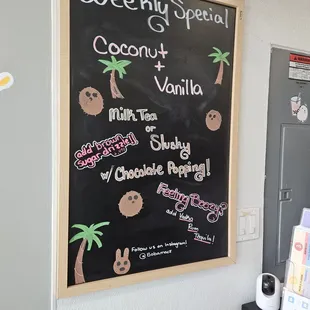 Weekly Special
Coconut
+
Vanilla
Milk Tea
or
Slushy
add brown
sugar drizzle!
w/ Chocolate Popping!
Feeling Boozy?
add Vodka
Rum
Tequila!
Follow us on Instagram!